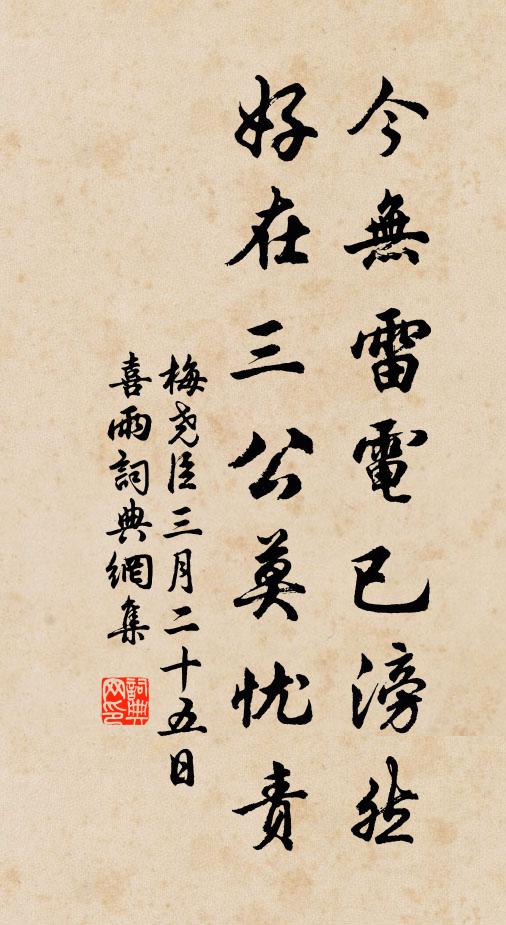 今無雷電已滂然
好在三公莫忧責
梅尧臣三月二十五日
喜雨詞典網集
詞典
网印